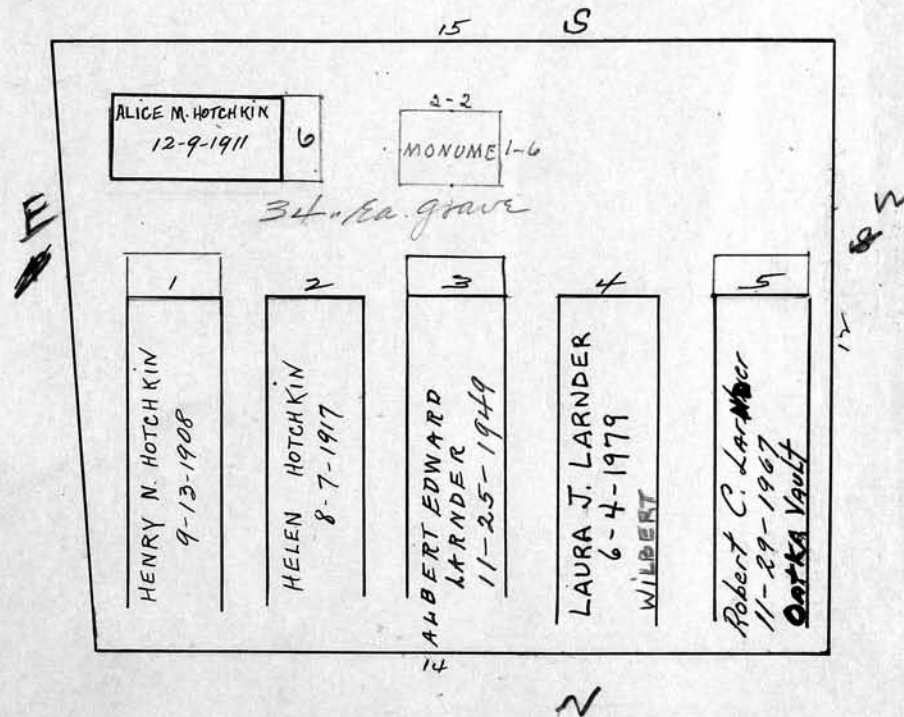 15 S
ALICE M. HOTCHKIN
12-9-1911
6
2-2
MONUME 1-6
34" Ea. grave
E
W
12
1
HENRY N. HOTCHKIN
9-13-1908
2
HELEN HOTCHKIN
8-7-1917
3
ALBERT EDWARD
LARNDER
11-25-1949
4
LAURA J. LARNDER
6-4-1979
WILBERT
5
Robert C. Larnder
11-29-1967
OATKA VAULT
14
N